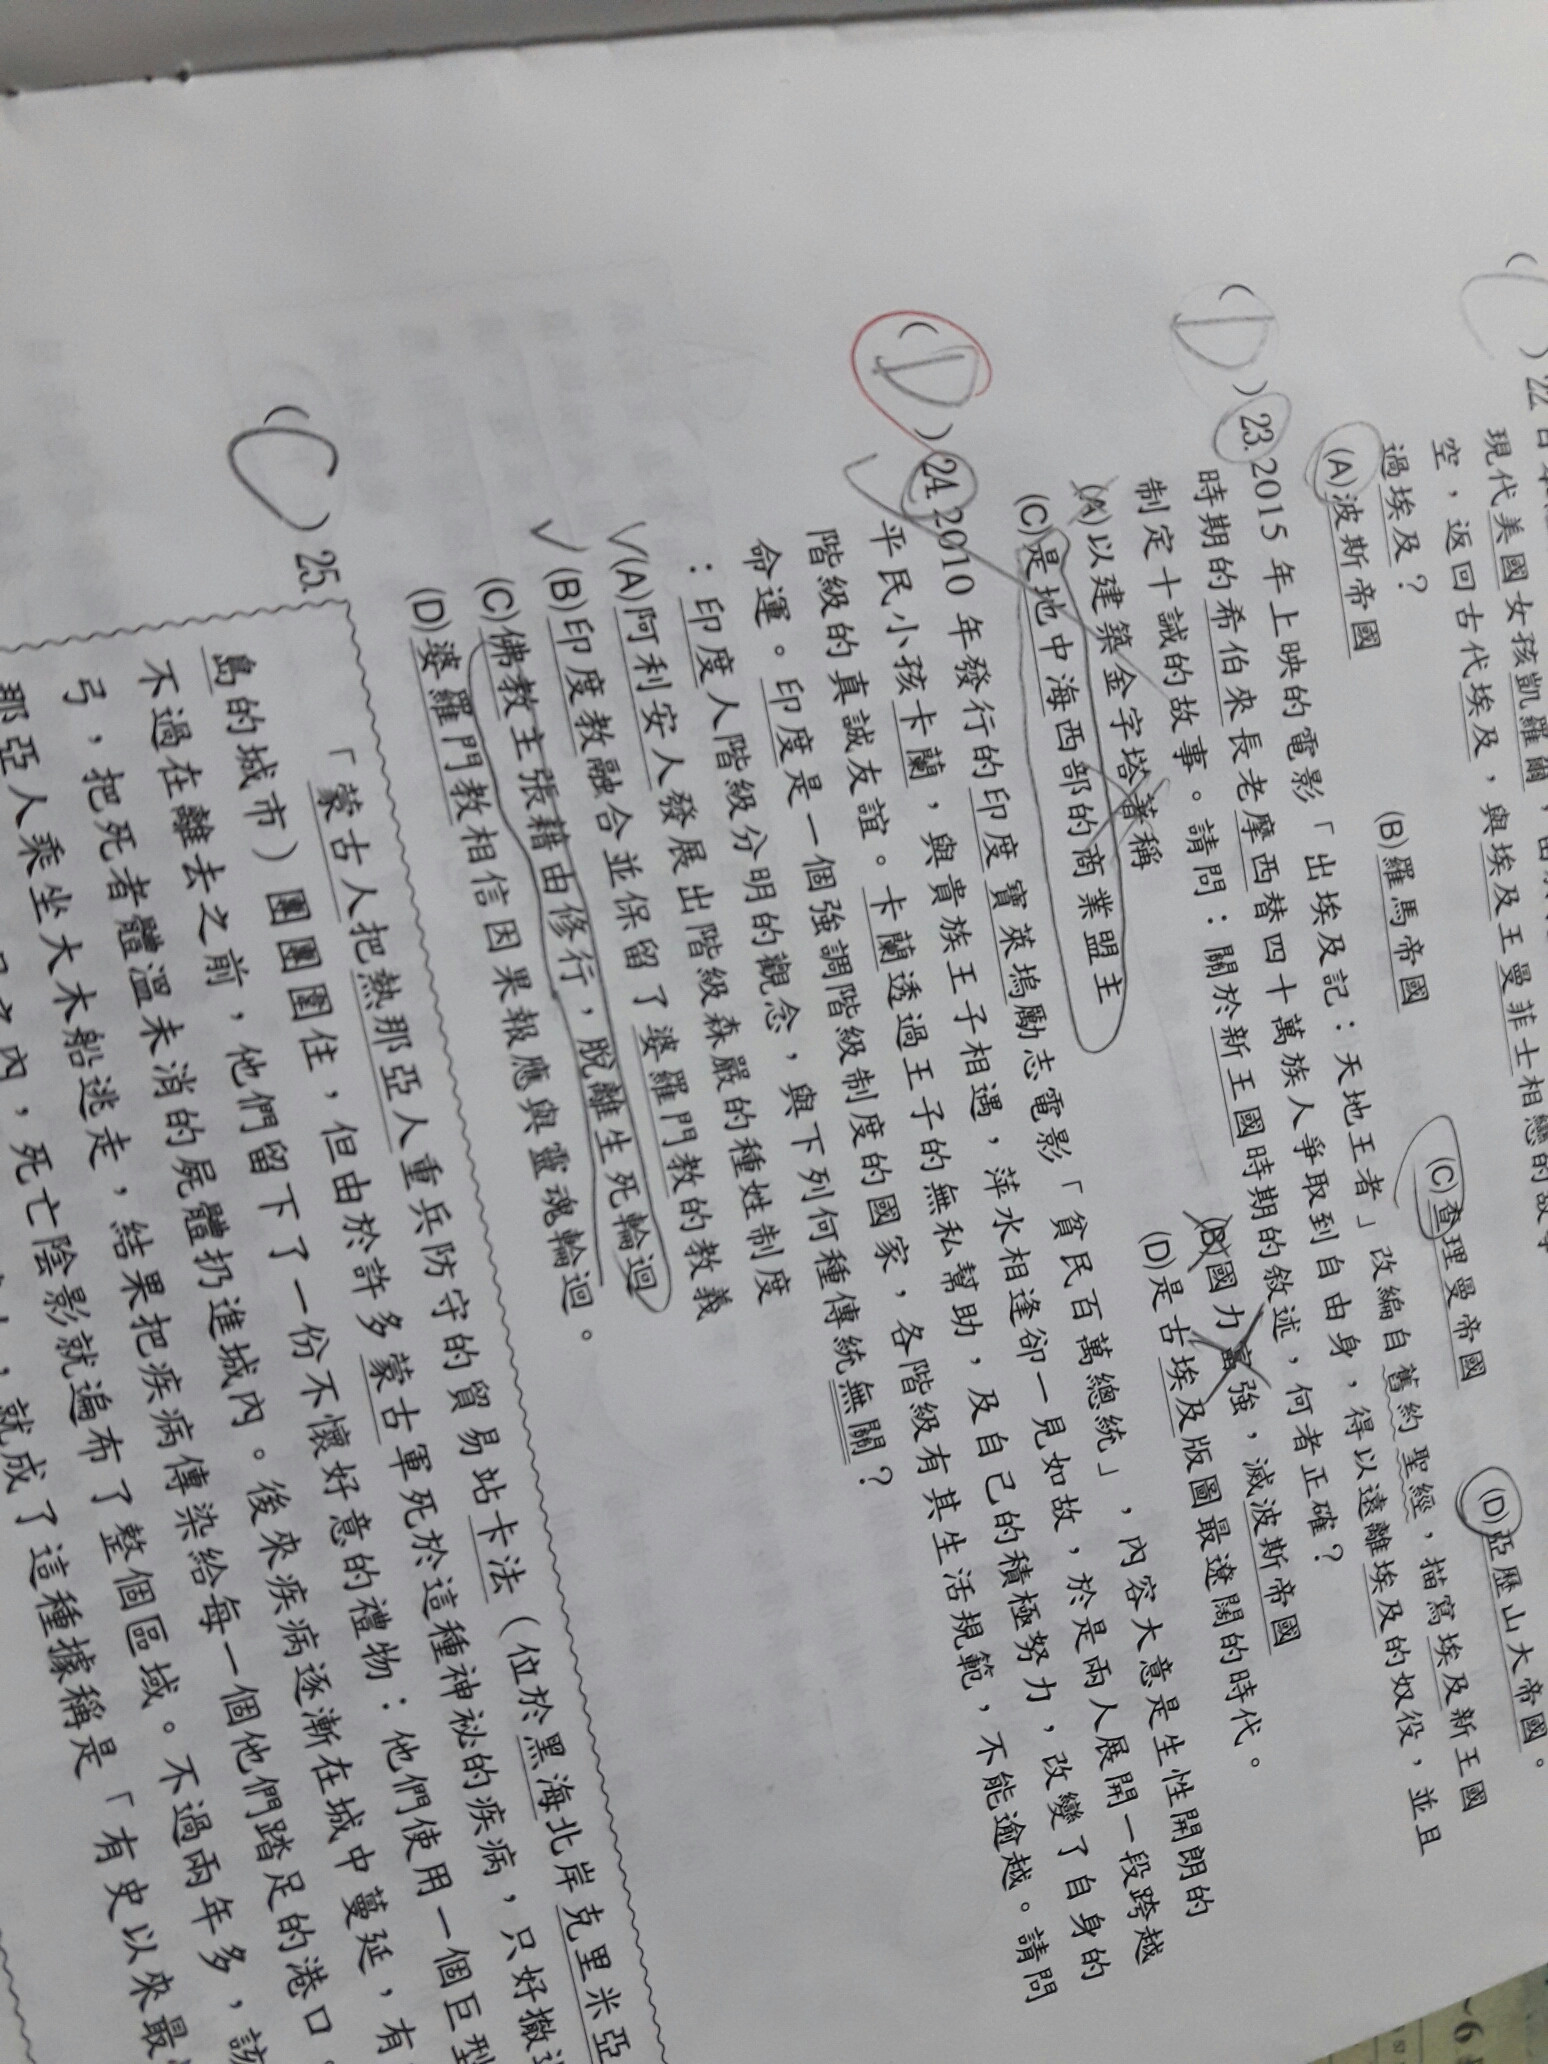 現代美國女孩凱羅爾,
空,返回古代埃及,與埃及王曼菲士相戀的故事
過埃及?
(A)波斯帝國 (B)羅馬帝國 (C)查理曼帝國 (D)亞歷山大帝國。
(D)23. 2015年上映的電影「出埃及記:天地王者」改編自舊約聖經,描寫埃及新王國
時期的希伯來長老摩西替四十萬族人爭取到自由身,得以遠離埃及的奴役,並且
制定十誡的故事。請問:關於新王國時期的敘述,何者正確?
(A)以建築金字塔著稱 (B)國力富強,滅波斯帝國
(C)是地中海西部的商業盟主 (D)是古埃及版圖最遼闊的時代。
(D)24. 2010年發行的印度寶萊塢勵志電影「貧民百萬總統」,內容大意是生性開朗的
平民小孩卡蘭,與貴族王子相遇,萍水相逢卻一見如故,於是兩人展開一段跨越
階級的真誠友誼。卡蘭透過王子的無私幫助,及自己的積極努力,改變了自身的
命運。印度是一個強調階級制度的國家,各階級有其生活規範,不能逾越。請問
:印度人階級分明的觀念,與下列何種傳統無關?
(A)阿利安人發展出階級森嚴的種姓制度
(B)印度教融合並保留了婆羅門教的教義
(C)佛教主張藉由修行,脫離生死輪迴
(D)婆羅門教相信因果報應與靈魂輪迴。
(C)25.
「蒙古人把熱那亞人重兵防守的貿易站卡法(位於黑海北岸克里米亞
島的城市)團團圍住,但由於許多蒙古軍死於這種神祕的疾病,只好撤
不過在離去之前,他們留下了一份不懷好意的禮物:他們使用一個巨型
弓,把死者體溫未消的屍體扔進城內。後來疾病逐漸在城中蔓延,有
那亞人乘坐大木船逃走,結果把疾病傳染給每一個他們踏足的港口。
之內,死亡陰影就遍布了整個區域。不過兩年多,該
就成了這種據稱是「有史以來最